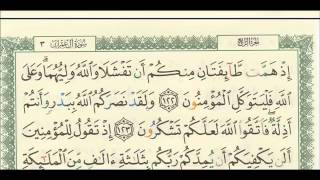 سورة آل عمران ٣ الجزء الرابع
إِذْ هَمَّت طَّآئِفَتَانِ مِنكُمْ أَن تَفْشَلَا وَاللَّهُ وَلِيُّهُمَا وَعَلَى
اللَّهِ فَلْيَتَوَكَّلِ الْمُؤْمِنُونَ ١٢٢ وَلَقَدْ نَصَرَكُمُ اللَّهُ بِبَدْرٍ وَأَنتُمْ
أَذِلَّةٌ فَاتَّقُوا اللَّهَ لَعَلَّكُمْ تَشْكُرُونَ ١٢٣ إِذْ تَقُولُ لِلْمُؤْمِنِينَ
أَلَن يَكْفِيَكُمْ أَن يُمِدَّكُمْ رَبُّكُم بِثَلَاثَةِ ءَالَافٍ مِّنَ الْمَلَائِكَةِ